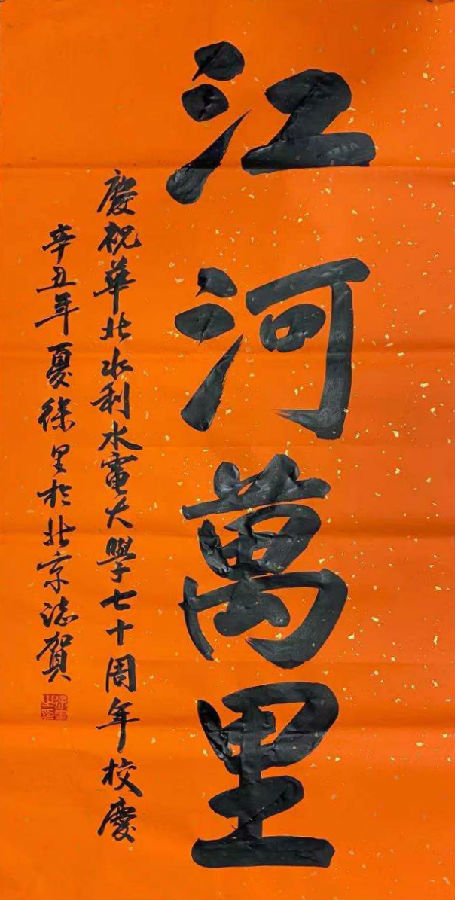 江河萬里
慶祝華北水利水電大學七十周年校慶
辛丑年夏徐里於北京誌賀